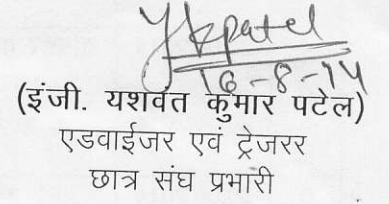 Ykpatel
16-8-14
(इंजी. यशवंत कुमार पटेल)
एडवाईजर एवं ट्रेजरर
छात्र संघ प्रभारी